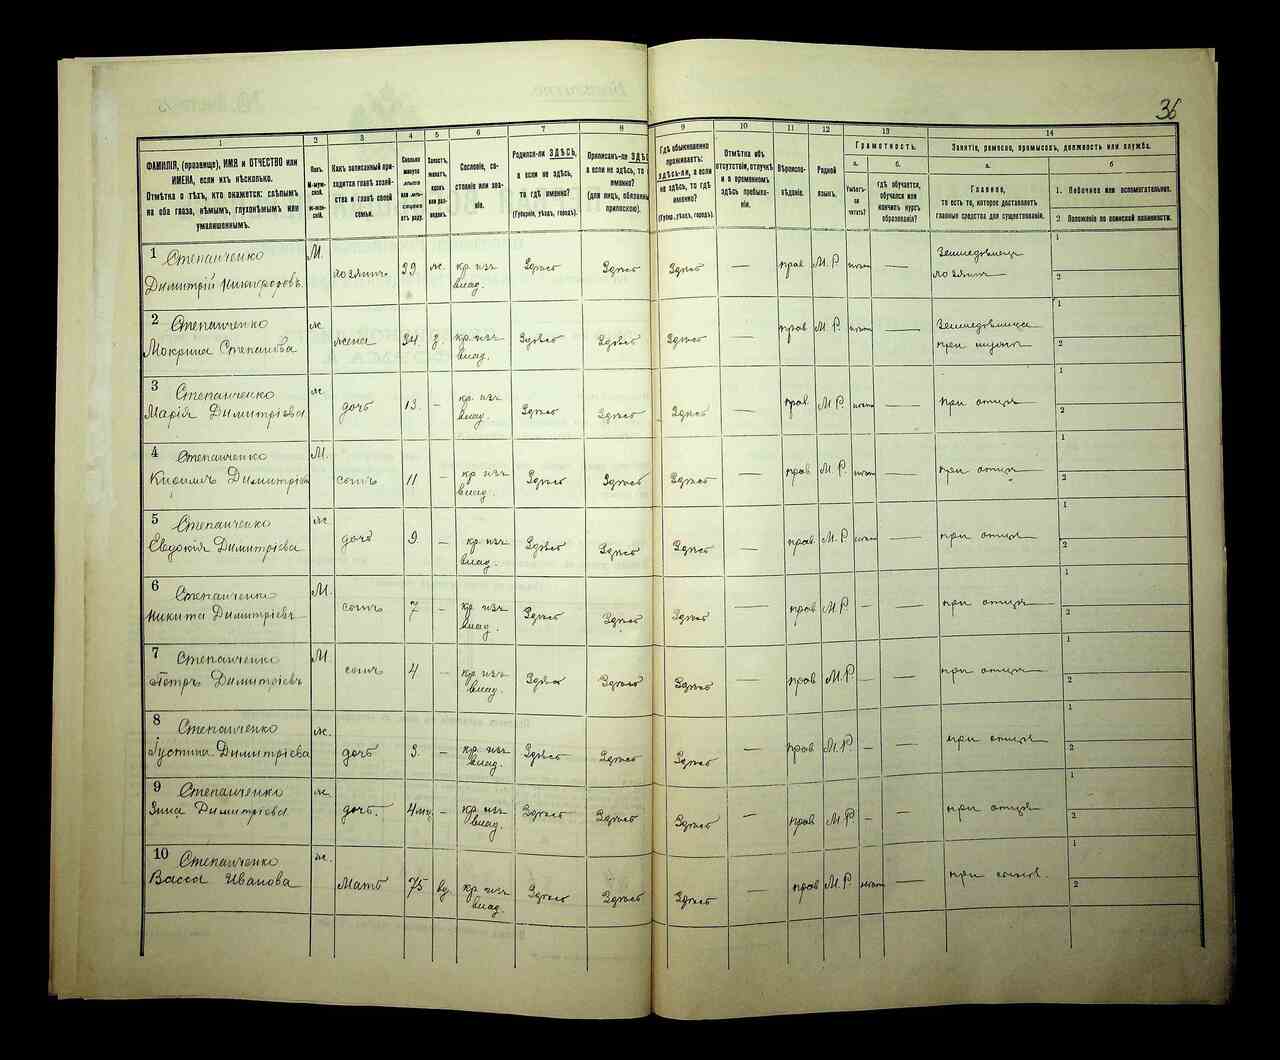 36
1 2 3 4 5 6 7 8 9 10 11 12 13 14
ФАМИЛІЯ, (прозвище), ИМЯ и ОТЧЕСТВО или
ИМЕНА, если ихъ нѣсколько.
Отмѣтка о тѣхъ, кто окажется: слѣпымъ
на оба глаза, нѣмымъ, глухонѣмымъ или
умалишеннымъ.
Полъ.
М-муж-
ской.
ж-жен-
скій.
Какъ записанный при-
ходится главѣ хозяй-
ства и главѣ своей
семьи.
Сколько
минуло
лѣтъ
или мѣ-
сяцевъ
отъ роду.
Холостъ,
женатъ,
вдовъ
или раз-
веденъ.
Сословіе, со-
стояніе или зва-
ніе.
Родился-ли ЗДѢСЬ,
а если не здѣсь,
то гдѣ именно?
(Губернія, уѣздъ, городъ).
Приписанъ-ли ЗДѢС
а если не здѣсь, то г
именно?
(для лицъ, обязанны
припискою).
Гдѣ обыкновенно
проживаетъ:
ЗДѢСЬ-ли, а если
не здѣсь, то гдѣ
именно?
(Губернія, уѣздъ, городъ).
Отмѣтка объ
отсутствіи, отлучкѣ
и о временномъ
здѣсь пребыва-
ніи.
Вѣроиспо-
вѣданіе.
Родной
языкъ.
Грамотность.
а.
Умѣетъ-
ли
читать?
б.
гдѣ обучается,
обучался или
кончилъ курсъ
образованія?
Занятіе, ремесло, промыселъ, должность или служба.
а.
Главное,
то есть то, которое доставляетъ
главныя средства для существованія.
б
1. Побочное или вспомогательное.
2 Положеніе по воинской повинности.
1 Степанченко М.
Димитрій Никифоровъ хозяинъ 39 ж. кр. изъ влад. Здѣсь Здѣсь Здѣсь — прав М.Р. —
хозяинъ
1
2
2 Степанченко ж
Мокрина Степанова жена 34 з. кр. изъ влад. Здѣсь Здѣсь Здѣсь — прав М.Р. —
1
2
3 Степанченко ж
Марія Димитріева дочь 13. - кр. изъ влад. Здѣсь Здѣсь Здѣсь — прав М.Р. — при отцѣ
1
2
4 Степанченко М.
Кирилъ Димитріевъ сынъ 11 - кр изъ влад. Здѣсь Здѣсь Здѣсь — прав М.Р. — при отцѣ
1
2
5 Степанченко ж
Евдокія Димитріева дочь 9. - кр. изъ влад. Здѣсь Здѣсь Здѣсь — прав. М.Р. — при отцѣ
1
2
6 Степанченко М.
Никита Димитріевъ сынъ 7 - кр изъ влад. Здѣсь Здѣсь Здѣсь — прав М.Р. - — при отцѣ
1
2
7 Степанченко М.
Петръ Димитріевъ сынъ 4 - кр. изъ влад. Здѣсь Здѣсь Здѣсь — прав М.Р. - — при отцѣ
1
2
8 Степанченко ж.
Іустина Димитріева дочь 3. - кр. изъ влад. Здѣсь Здѣсь Здѣсь — прав М.Р - — при отцѣ
1
2
9 Степанченко ж.
Димитріева дочь. - кр. изъ влад. Здѣсь Здѣсь Здѣсь — прав М.Р - — при отцѣ
1
2
10 Степанченко ж.
Васса Иванова Мать 75 вд. кр изъ влад. Здѣсь Здѣсь Здѣсь — прав М.Р. — при сынѣ.
1
2